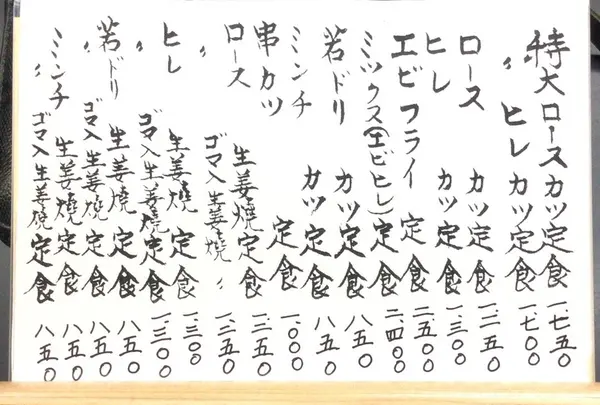 特大ロースカツ定食 一、七五〇
〃 ヒレカツ定食 一、七〇〇
ロースカツ定食 一、二五〇
ヒレカツ定食 一、三〇〇
エビフライ定食 二、五〇〇
ミックス(エビヒレ)定食 二、四〇〇
若ドリカツ定食 八五〇
ミンチカツ定食 八五〇
串カツ定食 一、〇〇〇
ロース生姜燒定食 一、二五〇
〃 ゴマ入生姜燒〃 一、二五〇
ヒレ生姜燒定食 一、三〇〇
〃 ゴマ入生姜燒定食 一、三〇〇
若ドリ生姜燒定食 八五〇
〃 ゴマ入生姜燒定食 八五〇
ミンチ生姜燒定食 八五〇
〃 ゴマ入生姜燒定食 八五〇